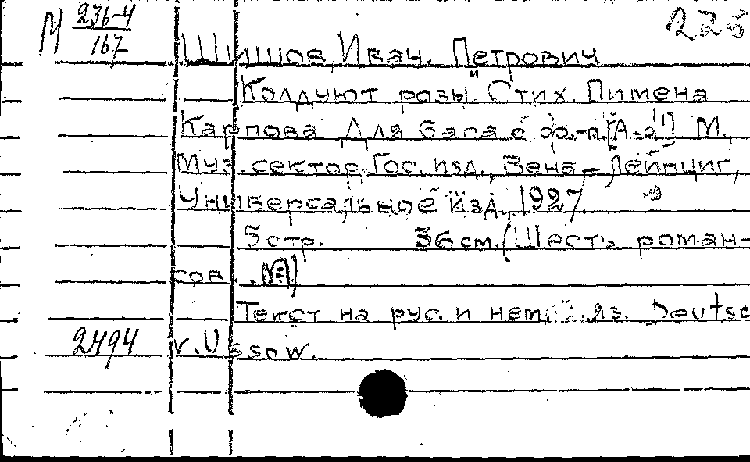 М 236-4
167
225
Шишов, Иван Петрович
"Колдуют розы". Стих. Пимена
Карпова. Для баса с ф.-п. М.,
Муз. сектор Гос. изд., Вена - Лейпциг,
Универсальное изд., 1927.
5 стр. 36 см. (Шесть роман-
сов. №1)
Текст на рус. и нем. яз. Deutsc
2494 v. Ussow.